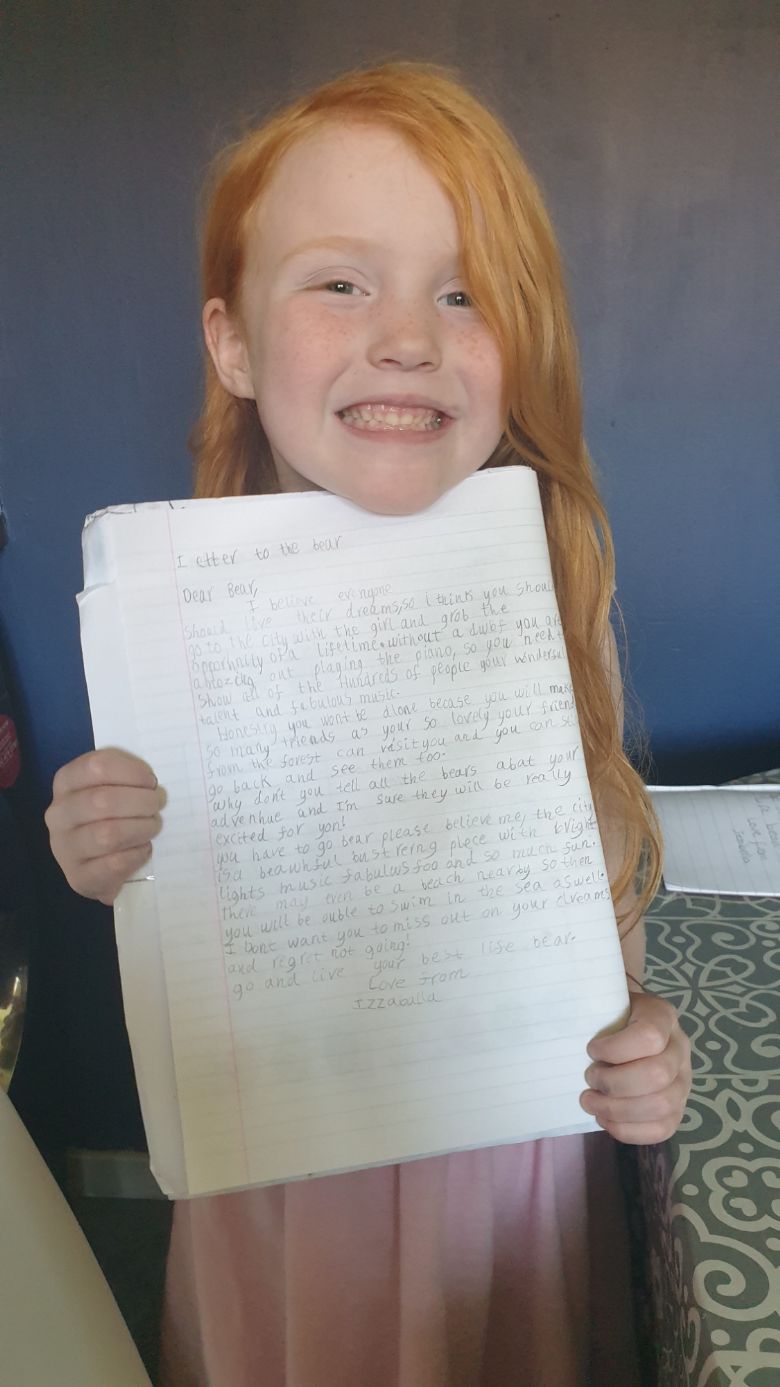 letter to the bear
Dear Bear,
I believe everyone
should live their dreams, so i think you shoul
go to the city with the girl and grob the
opportunity of a lifetime. without a dwbf you are
amazing out playing the piano, so you need t
show all of the hundreds of people your wonderful
talent and fabulous music.
Honestly you wont be alone becase you will make
so many friends as your so lovely your friend
from the forest can visit you and you can st
go back and see them too.
why dont you tell all the bears abat your
advenhue and I'm sure they will be really
excited for you!
you have to go bear please believe me, the city
is a beawhful bustrering plece with bright
lights music fabulus foo and so much fun.
there may even be a beach nearby so then
you will be ouble to swim in the sea aswell.
I Dont want you to miss out on your dreams
and regret not going!
go and live your best life bear.
Love from
Izzaballa
love from